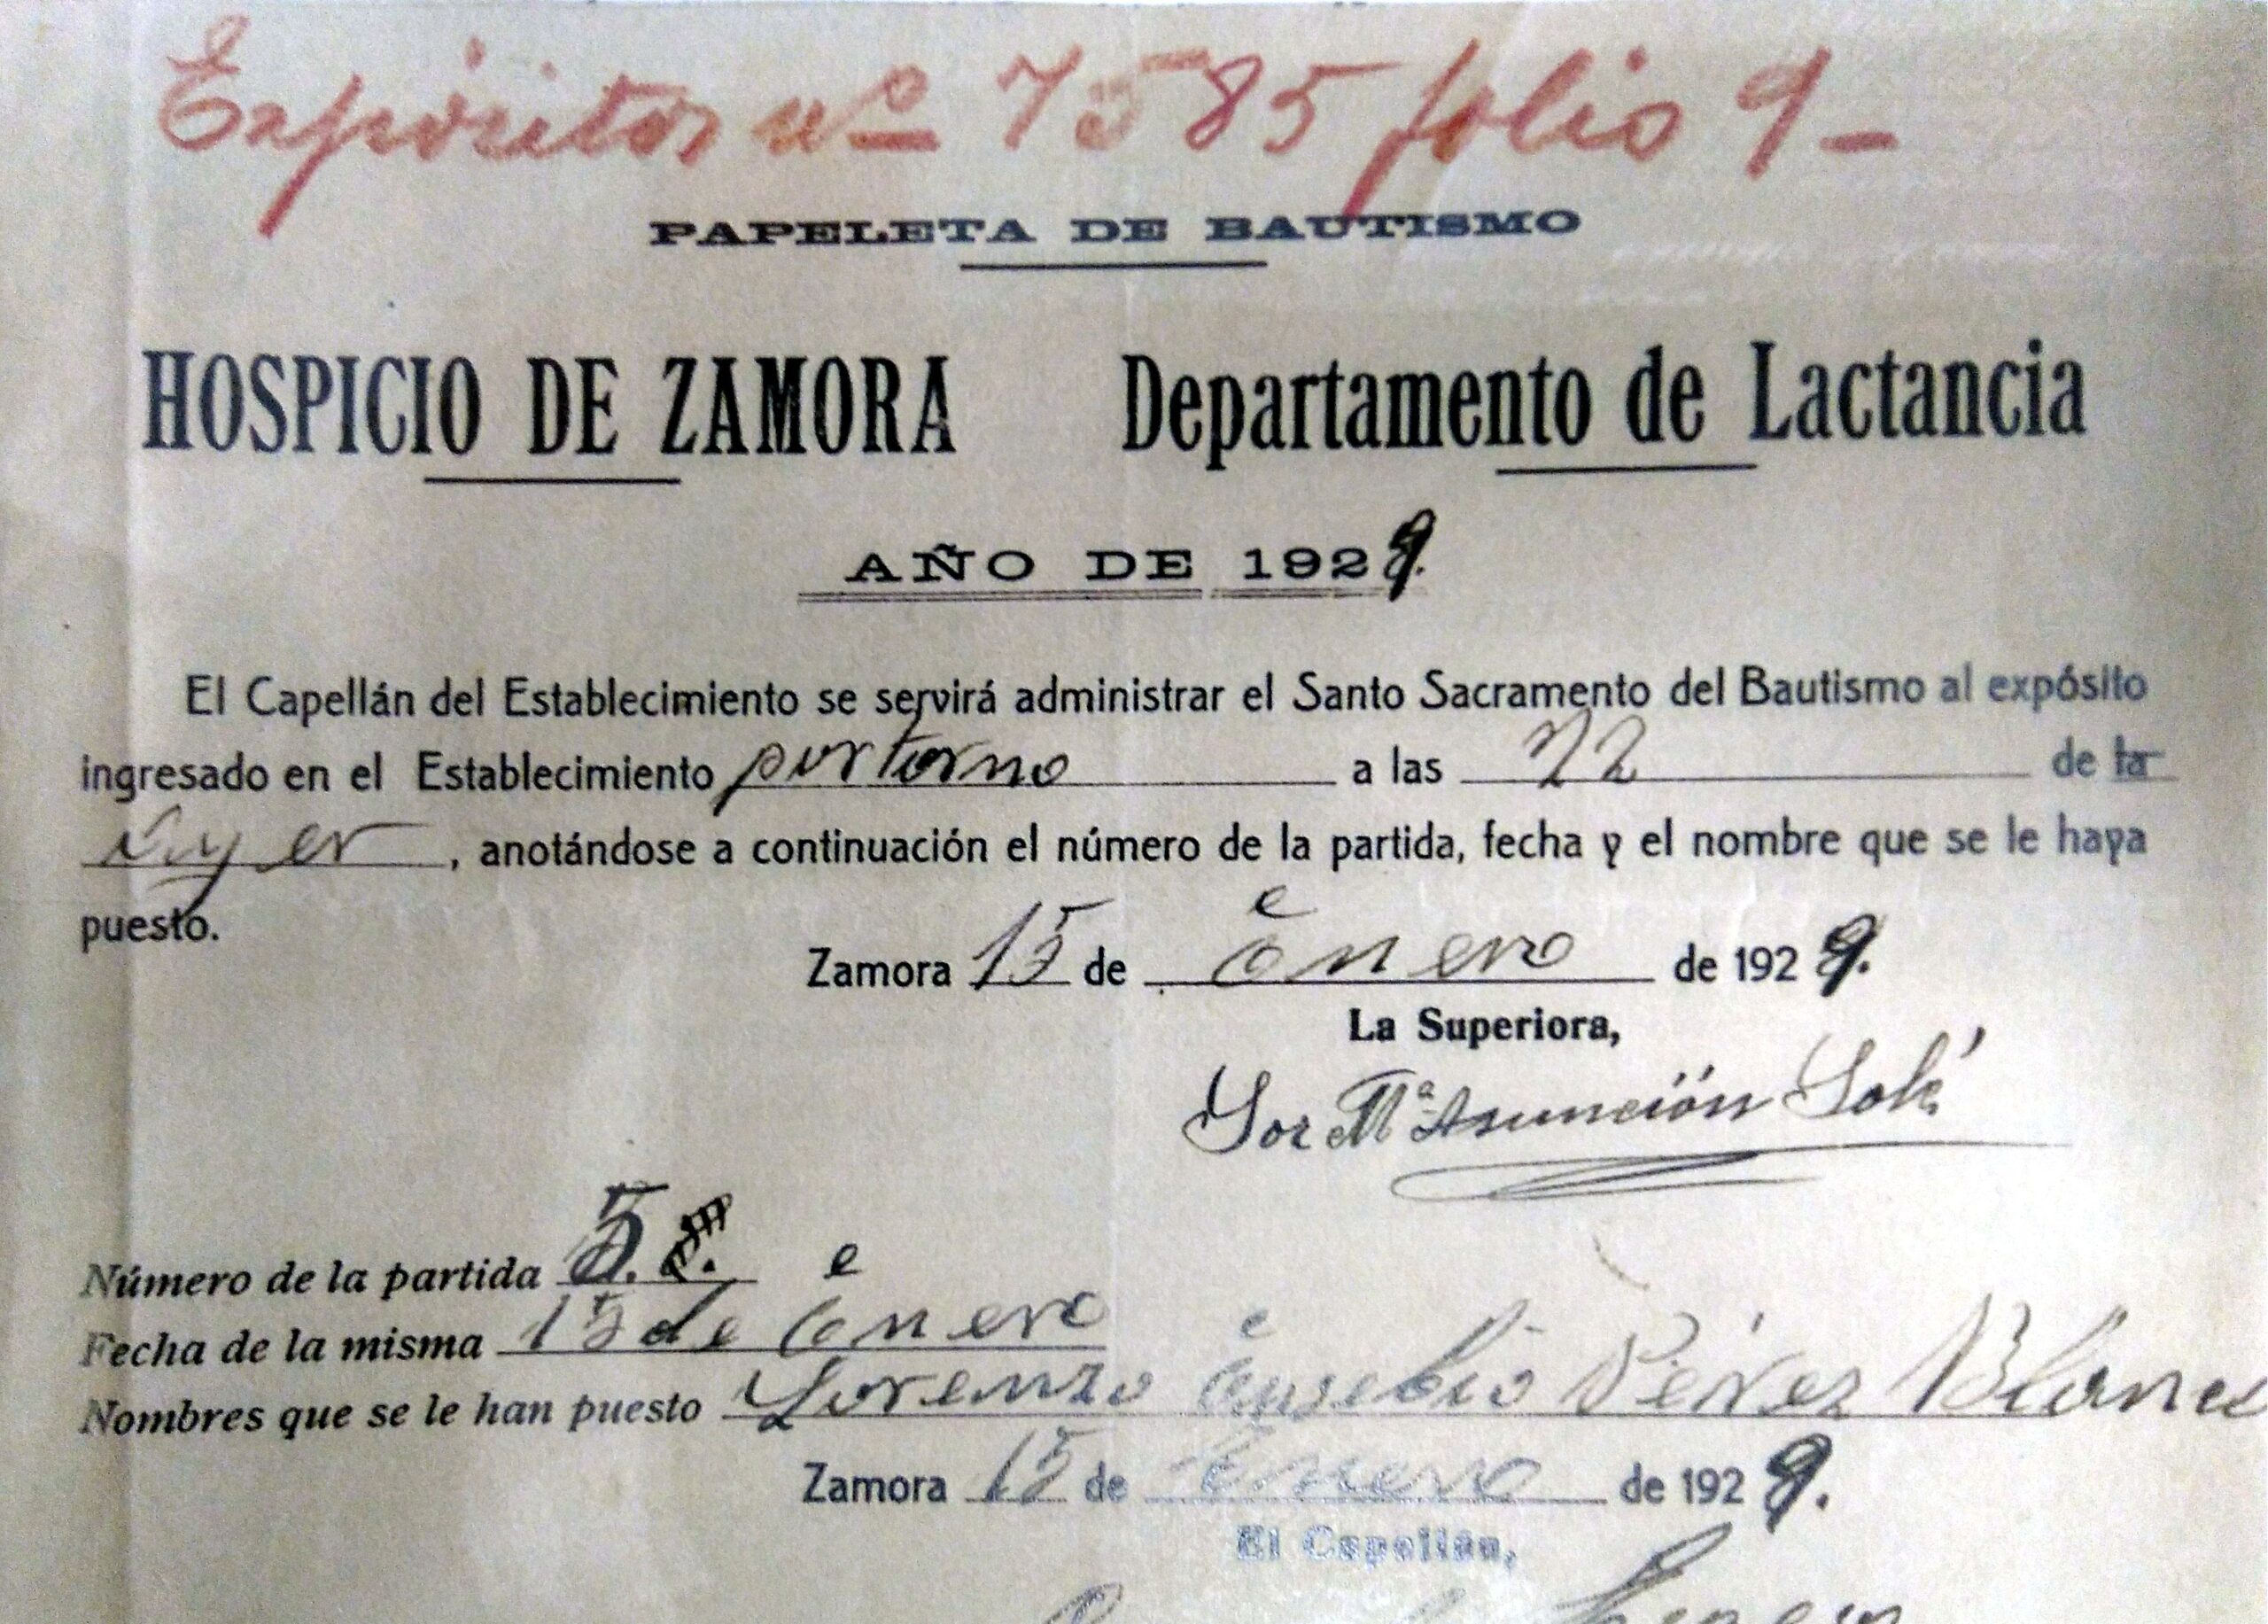 Expósitos nº 7585 folio 9-
PAPELETA DE BAUTISMO
HOSPICIO DE ZAMORA Departamento de Lactancia
AÑO DE 1929.
El Capellán del Establecimiento se servirá administrar el Santo Sacramento del Bautismo al expósito
ingresado en el Establecimiento por torno a las 22 de la
ayer, anotándose a continuación el número de la partida, fecha y el nombre que se le haya
puesto.
Zamora 15 de enero de 1929.
La Superiora,
Sor Mª Asunción Solé
Número de la partida 5.
Fecha de la misma 15 de enero
Nombres que se le han puesto Lorenzo Eusebio Pérez Blanco
Zamora 15 de Enero de 1929.
El Capellán,